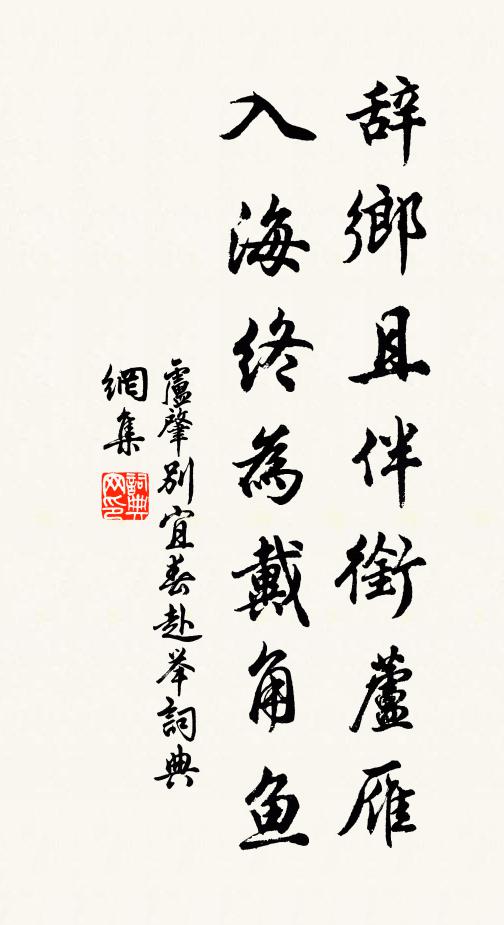 辞鄉且伴銜蘆雁
入海終為戴角魚
盧肇別宜春赴举詞典
網集
詞典
网印